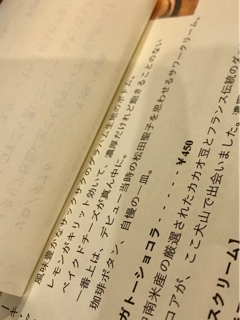 風味豊かな
ム生地のボトム。
レモンがキリット効いて、濃厚だけれど飽きることのない
ベイクドチーズが真ん中に。
一番上は、デビュー当時の松田聖子を思わせるサワークリーム。
珈琲ボタン、自慢の一皿。
ガトーショコラ・・・・・・￥450
南米産の厳選されたカカオ豆とフランス伝統の
コアが、ここ犬山で出会いました。
スクリーム】